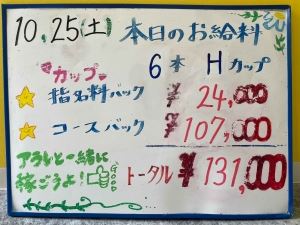 10,25(土) 本日のお給料
カップ 6本 Hカップ
指名料バック ¥24,000
コースバック ¥107,000
アラレと一緒に
稼ごうよ!
GOOD
トータル ¥131,000